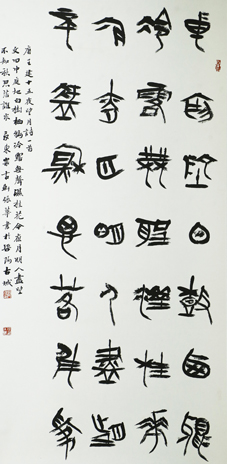 中庭地白樹栖鴉
冷露無聲濕桂花
今夜月明人盡望
不知秋思落誰家
唐王建十五夜望月詩一首
文曰中庭地白樹栖鴉冷露無聲濕桂花今夜月明人盡望
不知秋思落誰家 書於 古城